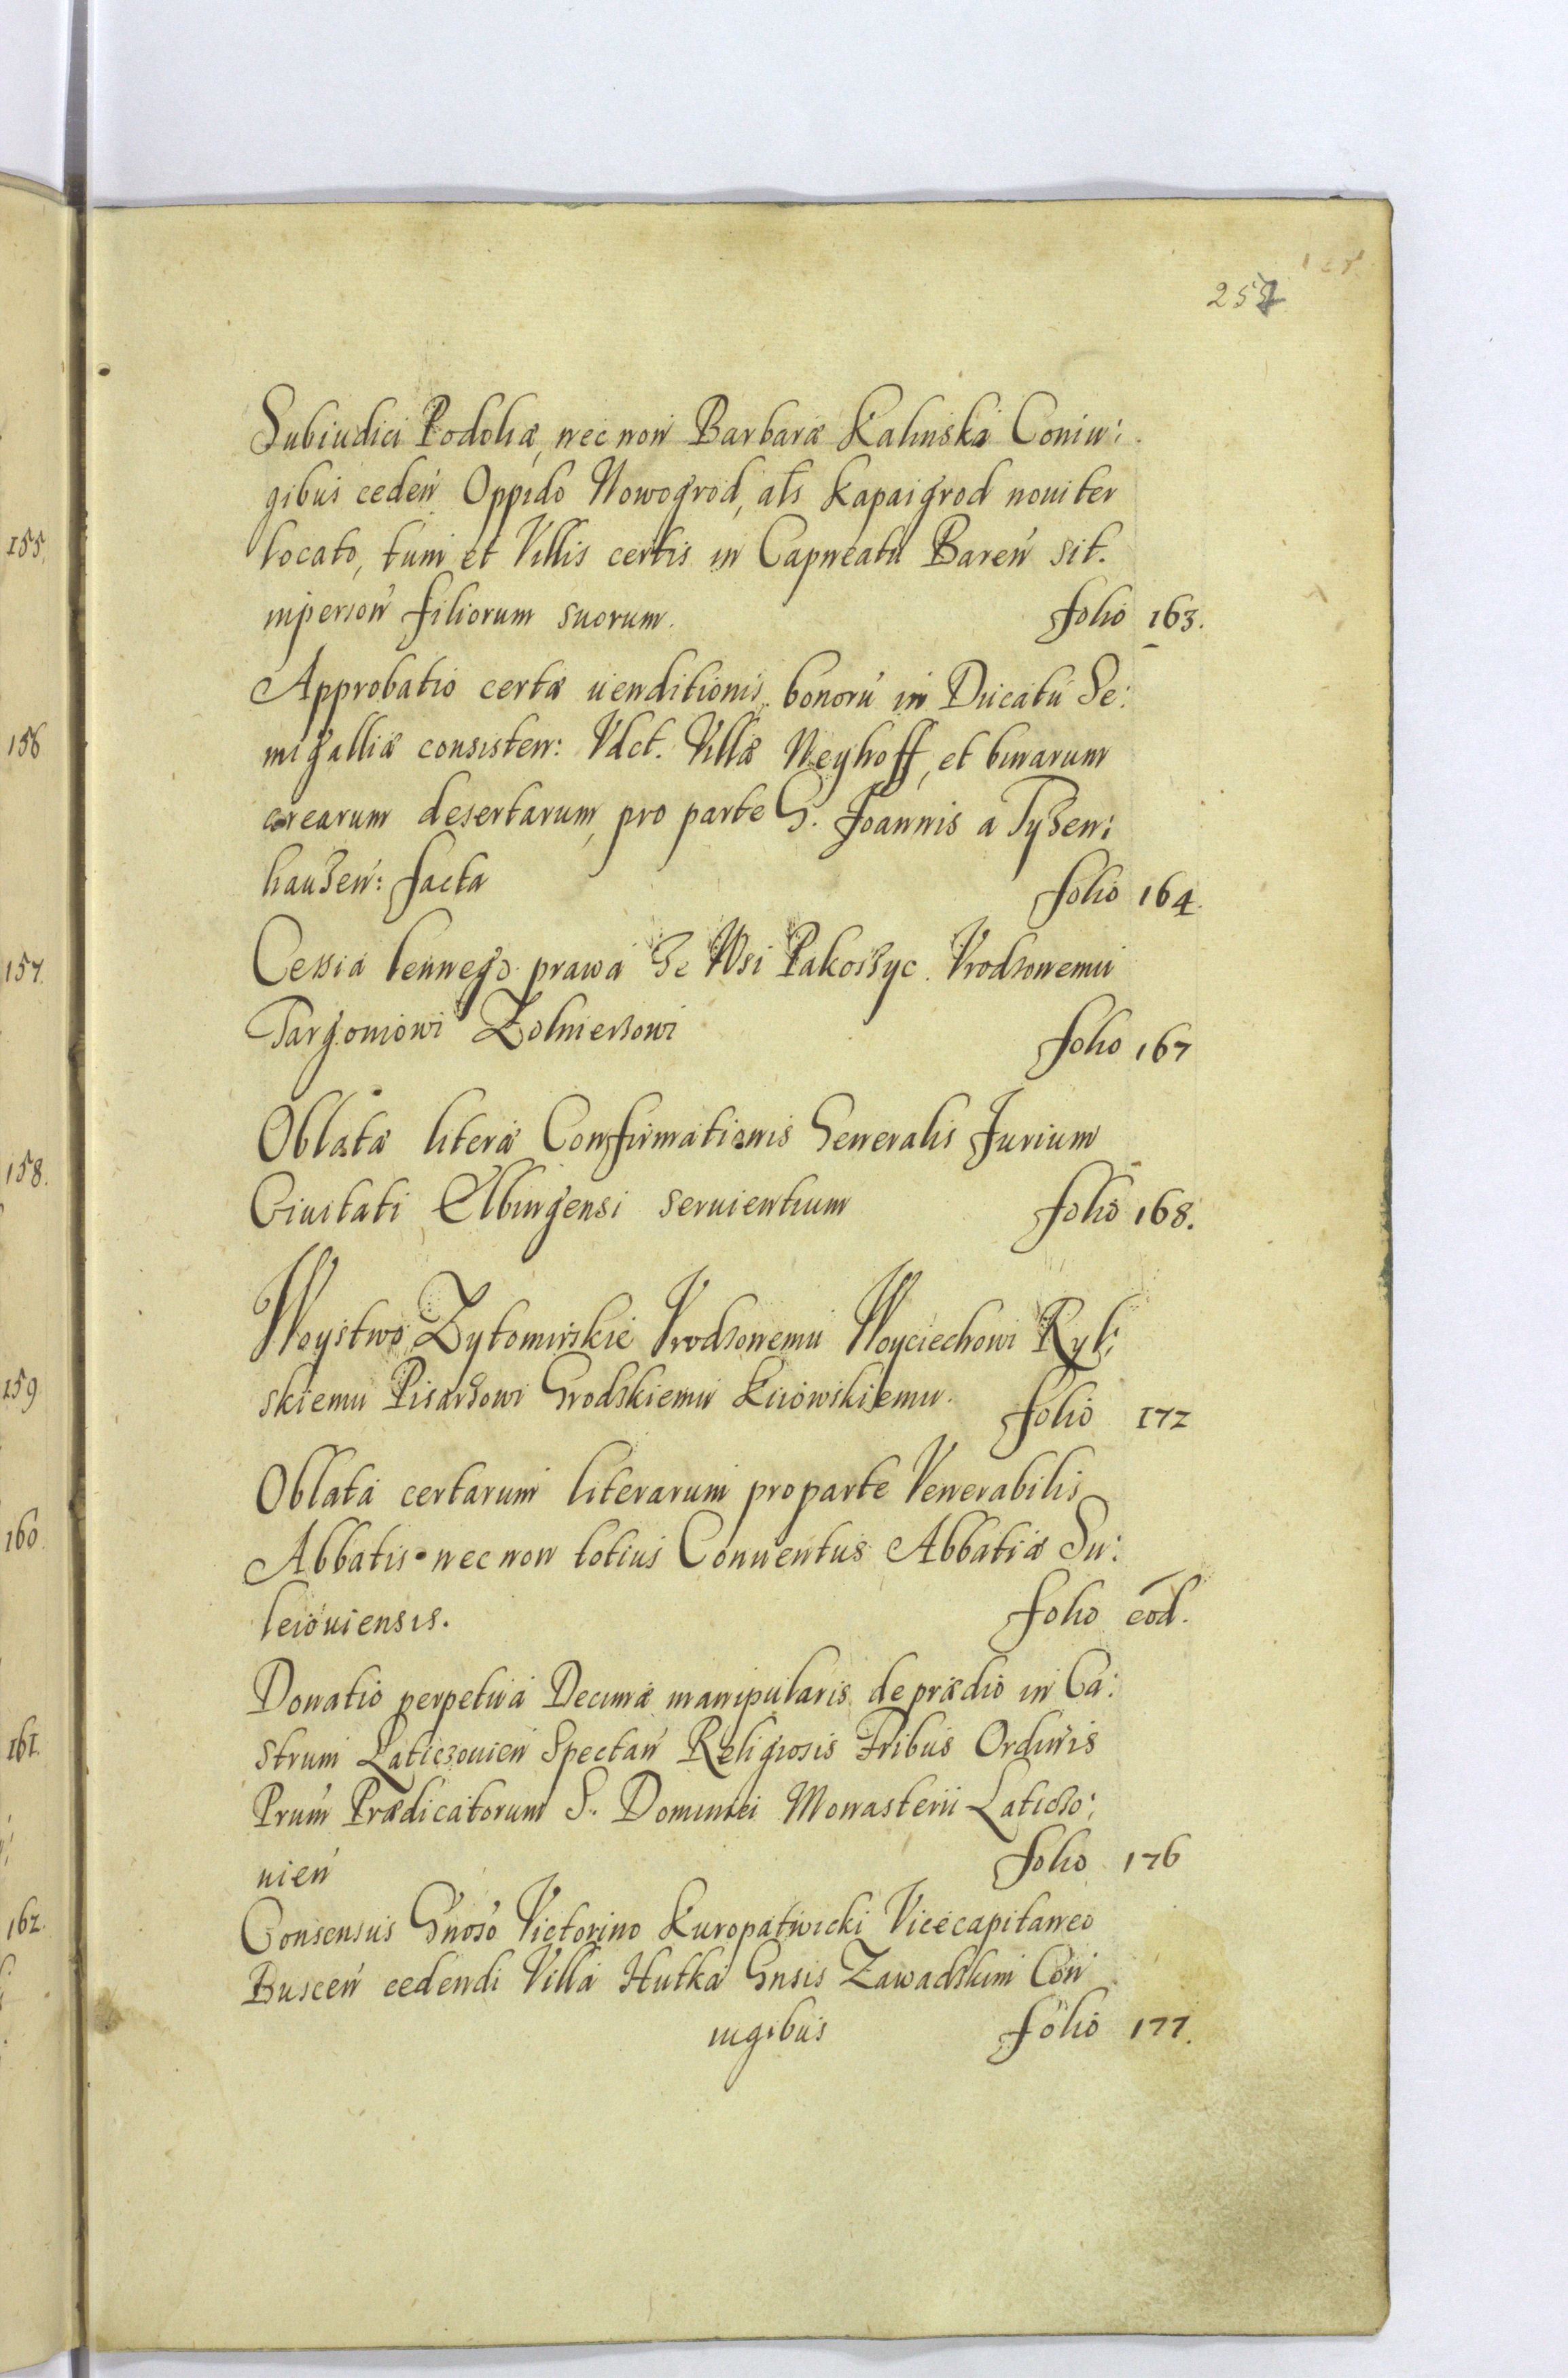 257
Subiudici Podoliæ, nec non Barbaræ Kalinska Coniu:
gibus ceden Oppido Nowogrod, als Kapaigrod nouiter
locato, tum et Villis certis in Capneatu Baren sit.
in person filiorum suorum. folio 163.
Approbatio certæ uenditionis bonorú in Ducatu Se:
migalliæ consisten: Vdct. Villæ Neyhoff, et binarum
arearum desertarum, pro parte G. Joannis a Tyzen:
hauzen: facta folio 164.
Cessia lennego prawa ze Wsi Pakoszyc Vrodzonemu
Targoniowi Zolnierzowi folio 167
Oblatæ literæ Confirmationis Generalis Jurium
Ciuitati Elbingensi seruientium folio 168.
Woystwo Zytomirskie Vrodzonemu Woyciechowi Ryl:
skiemu Pisarzowi Grodzkiemu Kiiowskiemu. folio 172
Oblata certarum literarum pro parte Venerabilis
Abbatis nec non totius Conuentus Abbatiæ Su:
leiouiensis. folio eod.
Donatio perpetua Decimæ manipularis de prædio in Ca:
strum Laticzouien Spectan Religiosis Fribus Ordinis
Prum Prædicatorum S. Dominici Monasterii Laticzo:
uien folio 176
Consensus Gnoso Victorino Kuropatwicki Vicecapitaneo
Buscen cedendi Villa Hutka Gnsis Zawadzkim Con
iugibus folio 177.
155.
156
157.
158.
159
160.
161.
162.